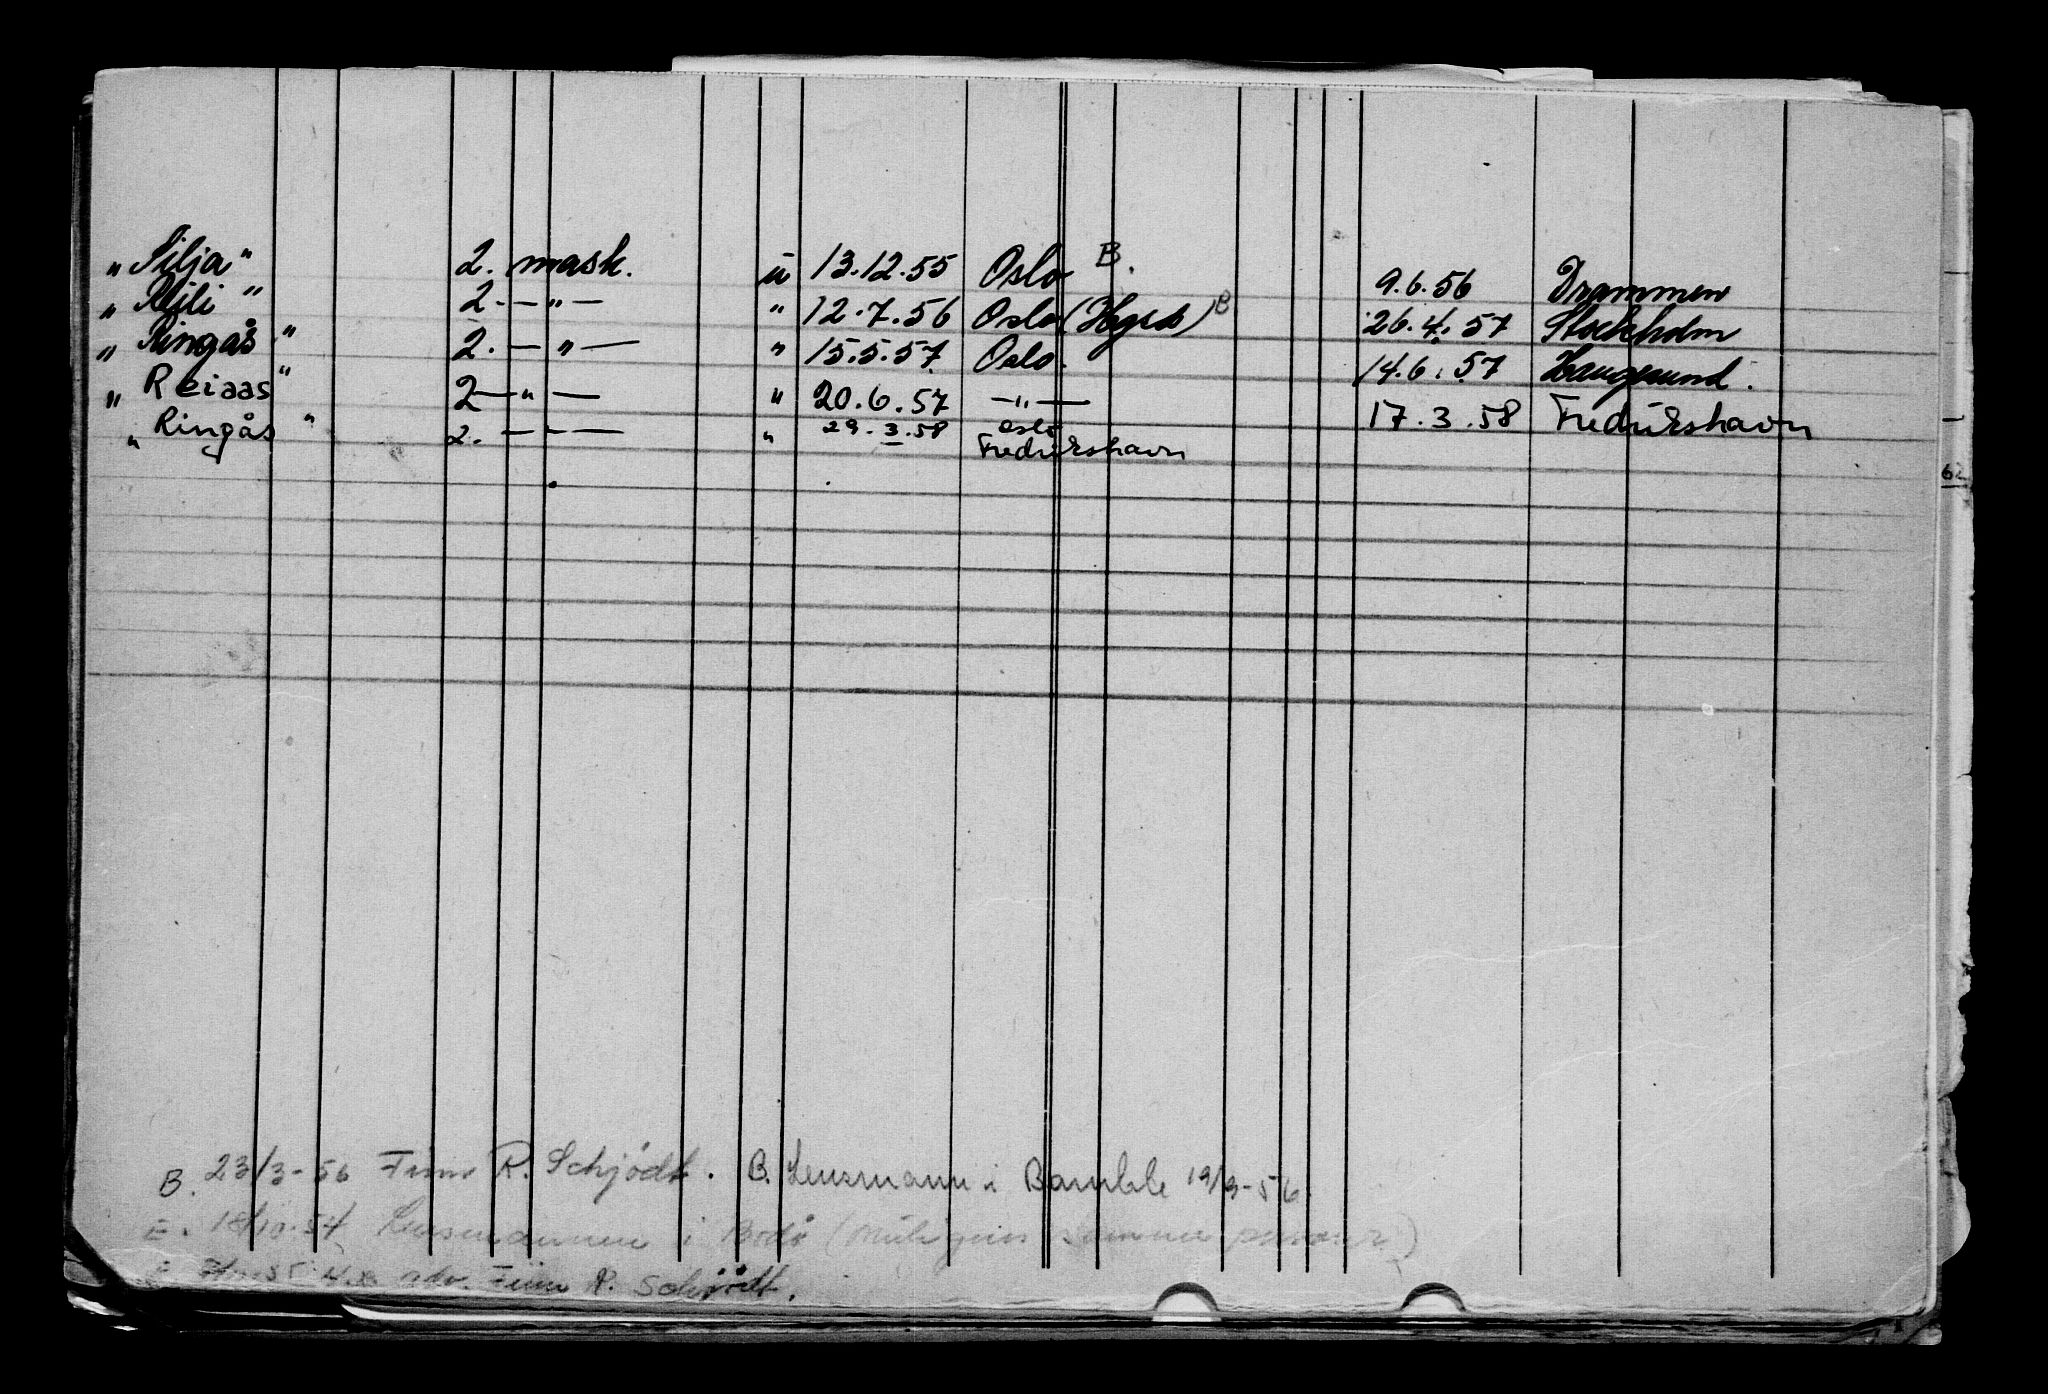 "Silja" 2. mask. u 13.12.55 Oslo B. 9.6.56 Drammen
" " 2. — " — " 12.7.56 Oslo B 26.4.57 Stockholm
"Ringås" 2. — " — " 15.5.57 Oslo. 14.6.57 Haugesund.
"Reiaas" 2 — " — " 20.6.57 — " — 17.3.58 Fredrikshavn
"Ringås" 2. — " — " 29.3.58 Oslo
Fredrikshavn
62
B. 23/3-56 Finn R. Schjödt. B. Lensmann i Bamble 19/9-56.
E. 18/10.54 Lensmannen i Bodø (Muligens samme person)
adv. Finn R. Schjödt.